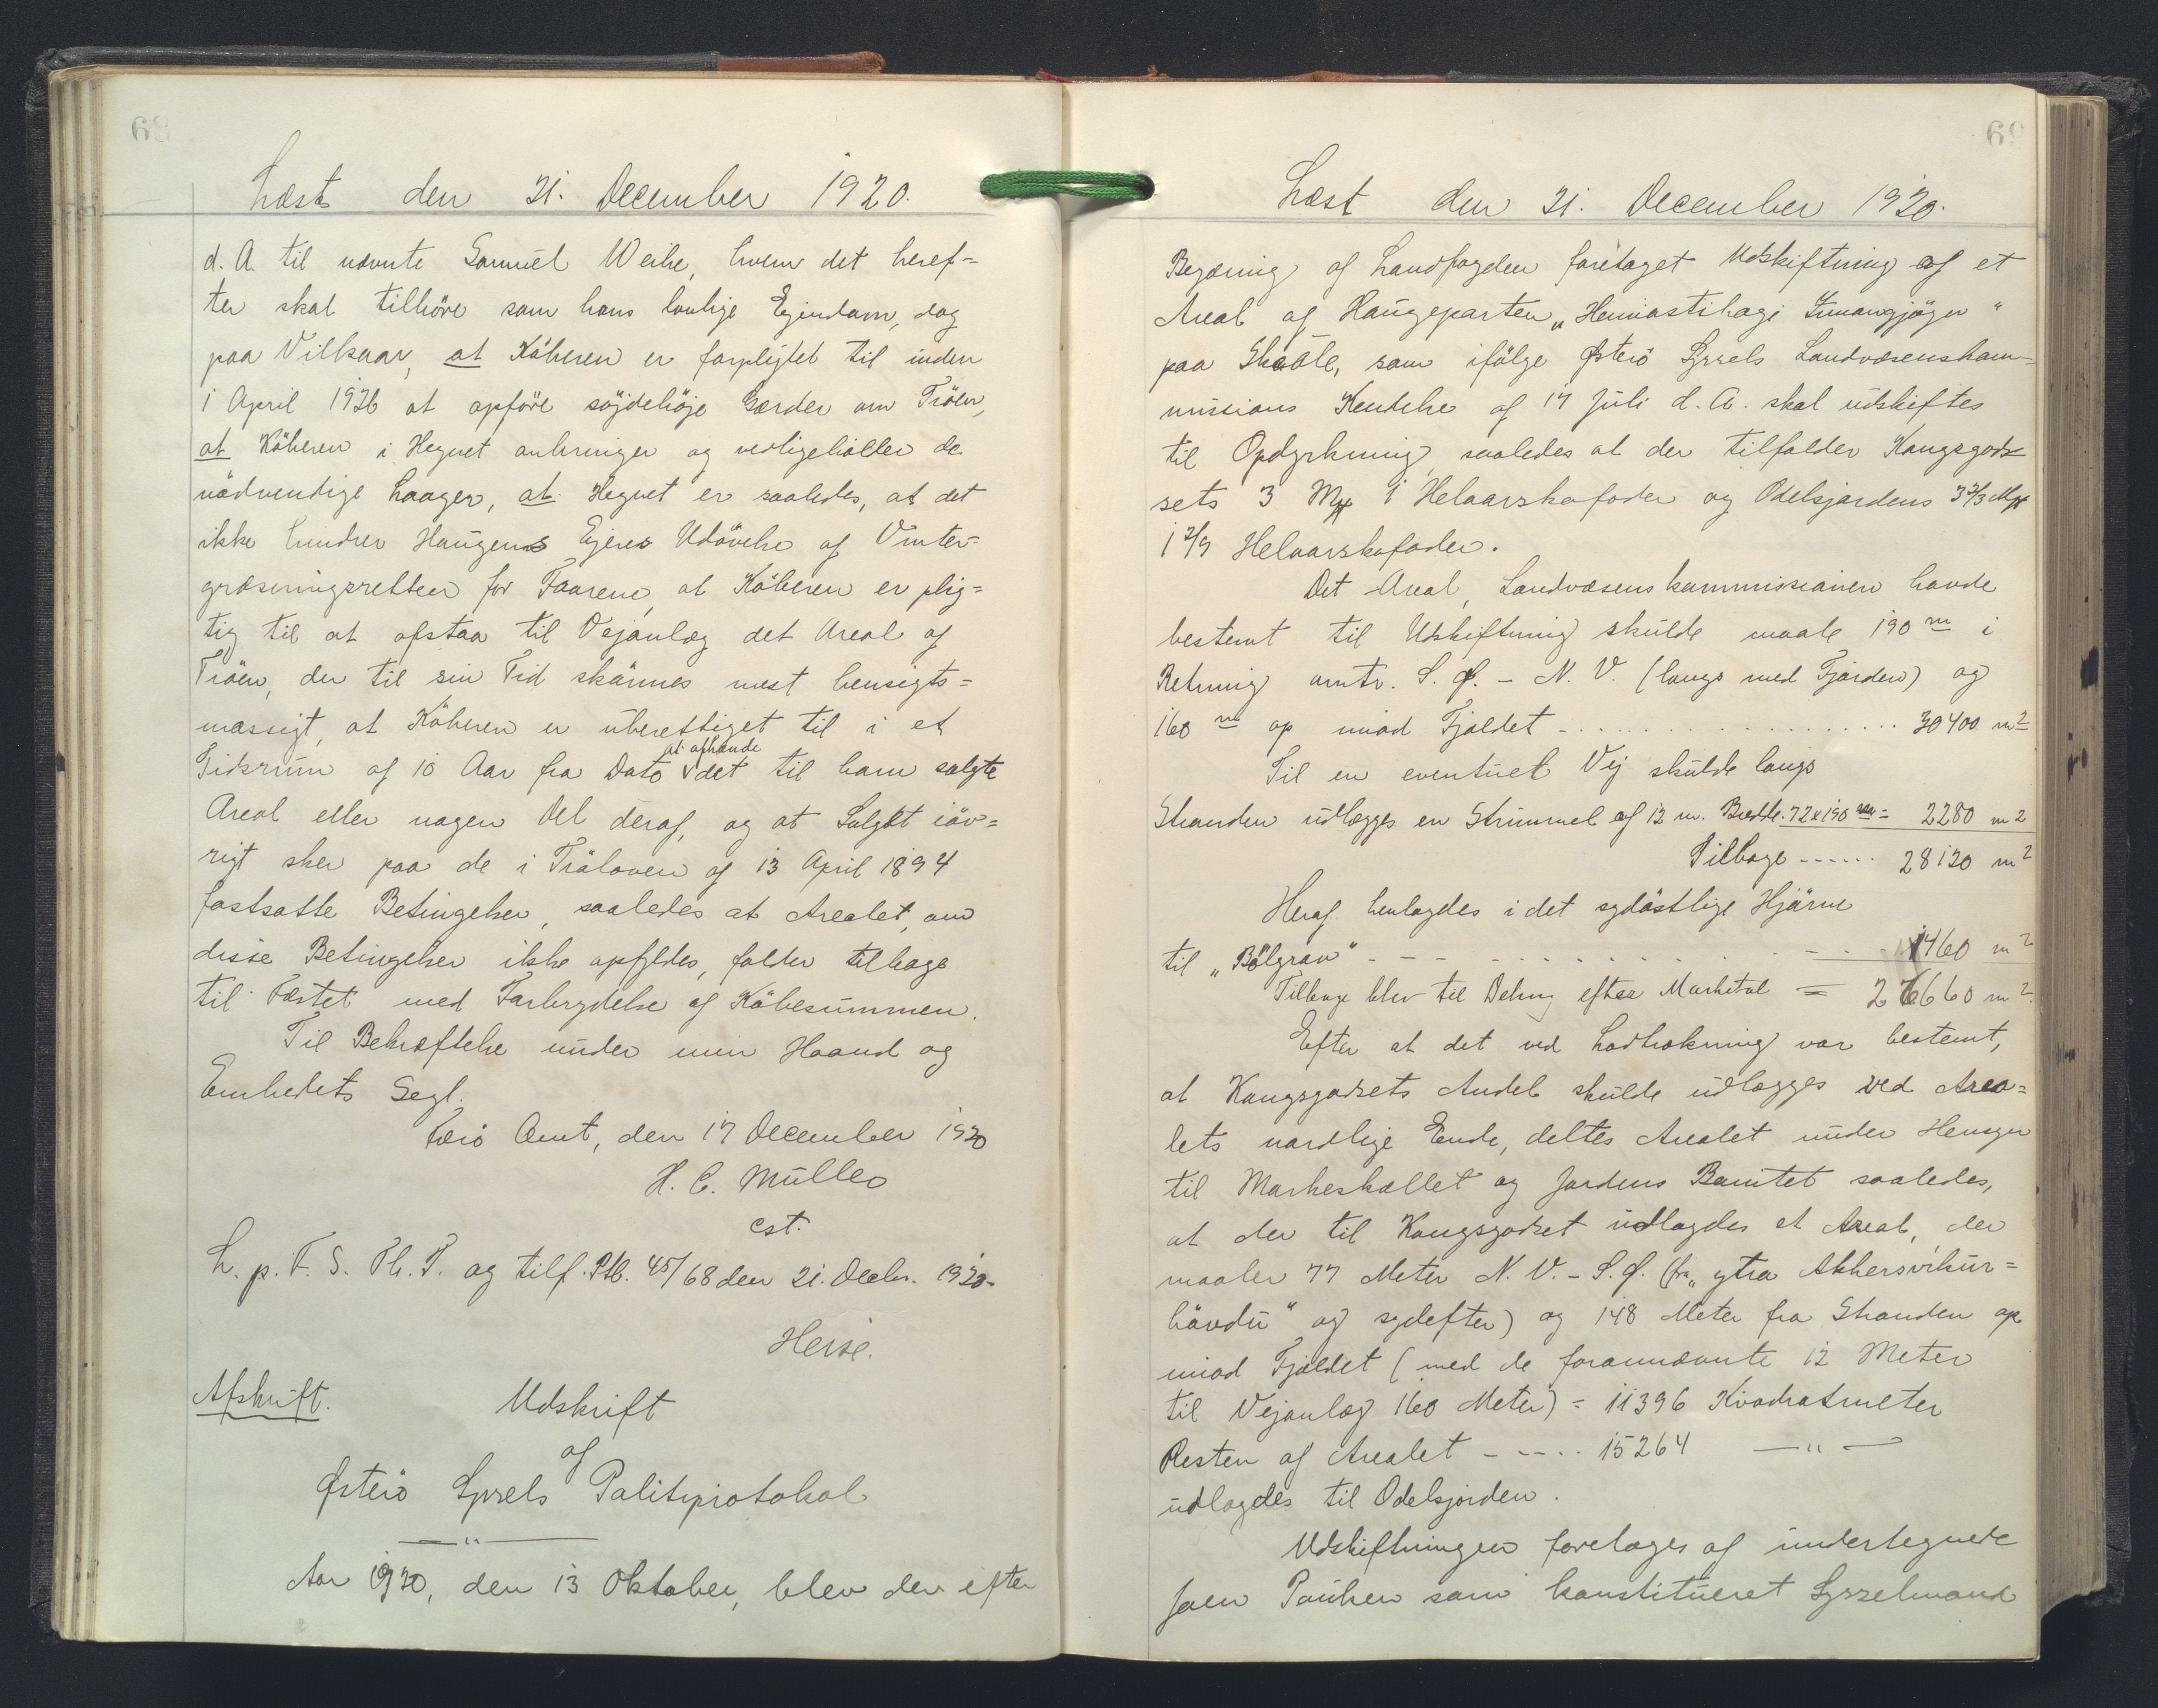 68
Læst den 21. December 1920.
d. A. til nævnte Samuel Weihe, hvem det heref=
ter skal tilhöre som hans lovlige Ejendom, dog
paa Vilkaar, at Köberen er forpligtet til inden
1 April 1926 at opföre söjdehöje Gærder om Tröen,
at Köberen i Hegnet anbringer og vedligeholder de
nödvendige Laager, at Hegnet er saaledes, at det
ikke hindrer Haugens Ejeres Udövelse af Vinter=
græsningsretten for Faarene, at Köberen er plig=
tig til at afstaa til Vejanlæg det Areal af
Tröen, der til sin Tid skönnes mest hensigts=
mæssigt, at Köberen er uberettiget til i et
Tidsrum af 10 Aar fra Dato at afhænde det til ham solgte
Areal eller nogen Del deraf, og at Salget iöv=
rigt sker paa de i Tröloven af 13 April 1894
fastsatte Betingelser, saaledes at Arealet, om
disse Betingelser ikke opfyldes, falder tilbage
til Fæstet med Forbrydelse af Köbesummen.
Til Bekræftelse under min Haand og
Embedets Segl.
Færö Amt, den 17 December 1920
H. C. Müller
cst.
L. p. F. S. Th. T. og tilf. Ptb. 45/68 den 21. Decbr. 1920.
Heise.
Afskrift. Udskrift
af
Østerö Syssels Politiprotokol
— " —
Aar 1920, den 13 Oktober, blev der efter
69
Læst den 21. December 1920.
Begæring af Landfogden foretaget Udskiftning af et
Areal af Haugeparten „Heimastihagi Innangjögv"
paa Skaale, som ifölge Østerö Syssels Landvæsenskom=
missions Kendelse af 17 Juli d. A. skal udskiftes
til Opdyrkning, saaledes at der tilfalder Kongsgods
sets 3 Mk 1 Helaarskofoder og Odelsjordens 3 2/3 Mk
1 2/9 Helaarskofoder.
Det Areal, Landvæsenskommissionen havde
bestemt til Udskiftning skulde maale 190 m i
Retning omtr. S. Ø. - N. V. (langs med Fjorden) og
160 m op imod Fjeldet - . . . . . . 30400 m2
Til en eventuel Vej skulde langs
Stranden udlægges en Strimmel af 12 m. Bredde. 12x190 m = 2280 m2
Tilbage ------ 28120 m2
Heraf henlagdes i det sydöstlige Hjörne
til „Bölgrav" - - - - . . . . . . 1460 m2
Tilbage blev til Deling efter Marketal = 26660 m2.
Efter at det ved Lodtrækning var bestemt,
at Kongsgodsets Andel skulde udlægges ved Area=
lets nordlige Ende, deltes Arealet under Hensyn
til Markeskellet og Jordens Bonitet saaledes,
at der til Kongsgodset udlagdes et Areal, der
maaler 77 Meter N. V. - S. Ø. (fra „ytra Akkersvikur=
hövdu" og sydefter) og 148 Meter fra Stranden op
imod Fjeldet (med de forannævnte 12 Meter
til Vejanlæg 160 Meter) = 11396 Kvadratmeter
Resten af Arealet - - - . . 15264 — " —
udlagdes til Odelsjorden.
Udskiftningen foretages af undertegnede
Joen Poulsen som konstitueret Sysselmand